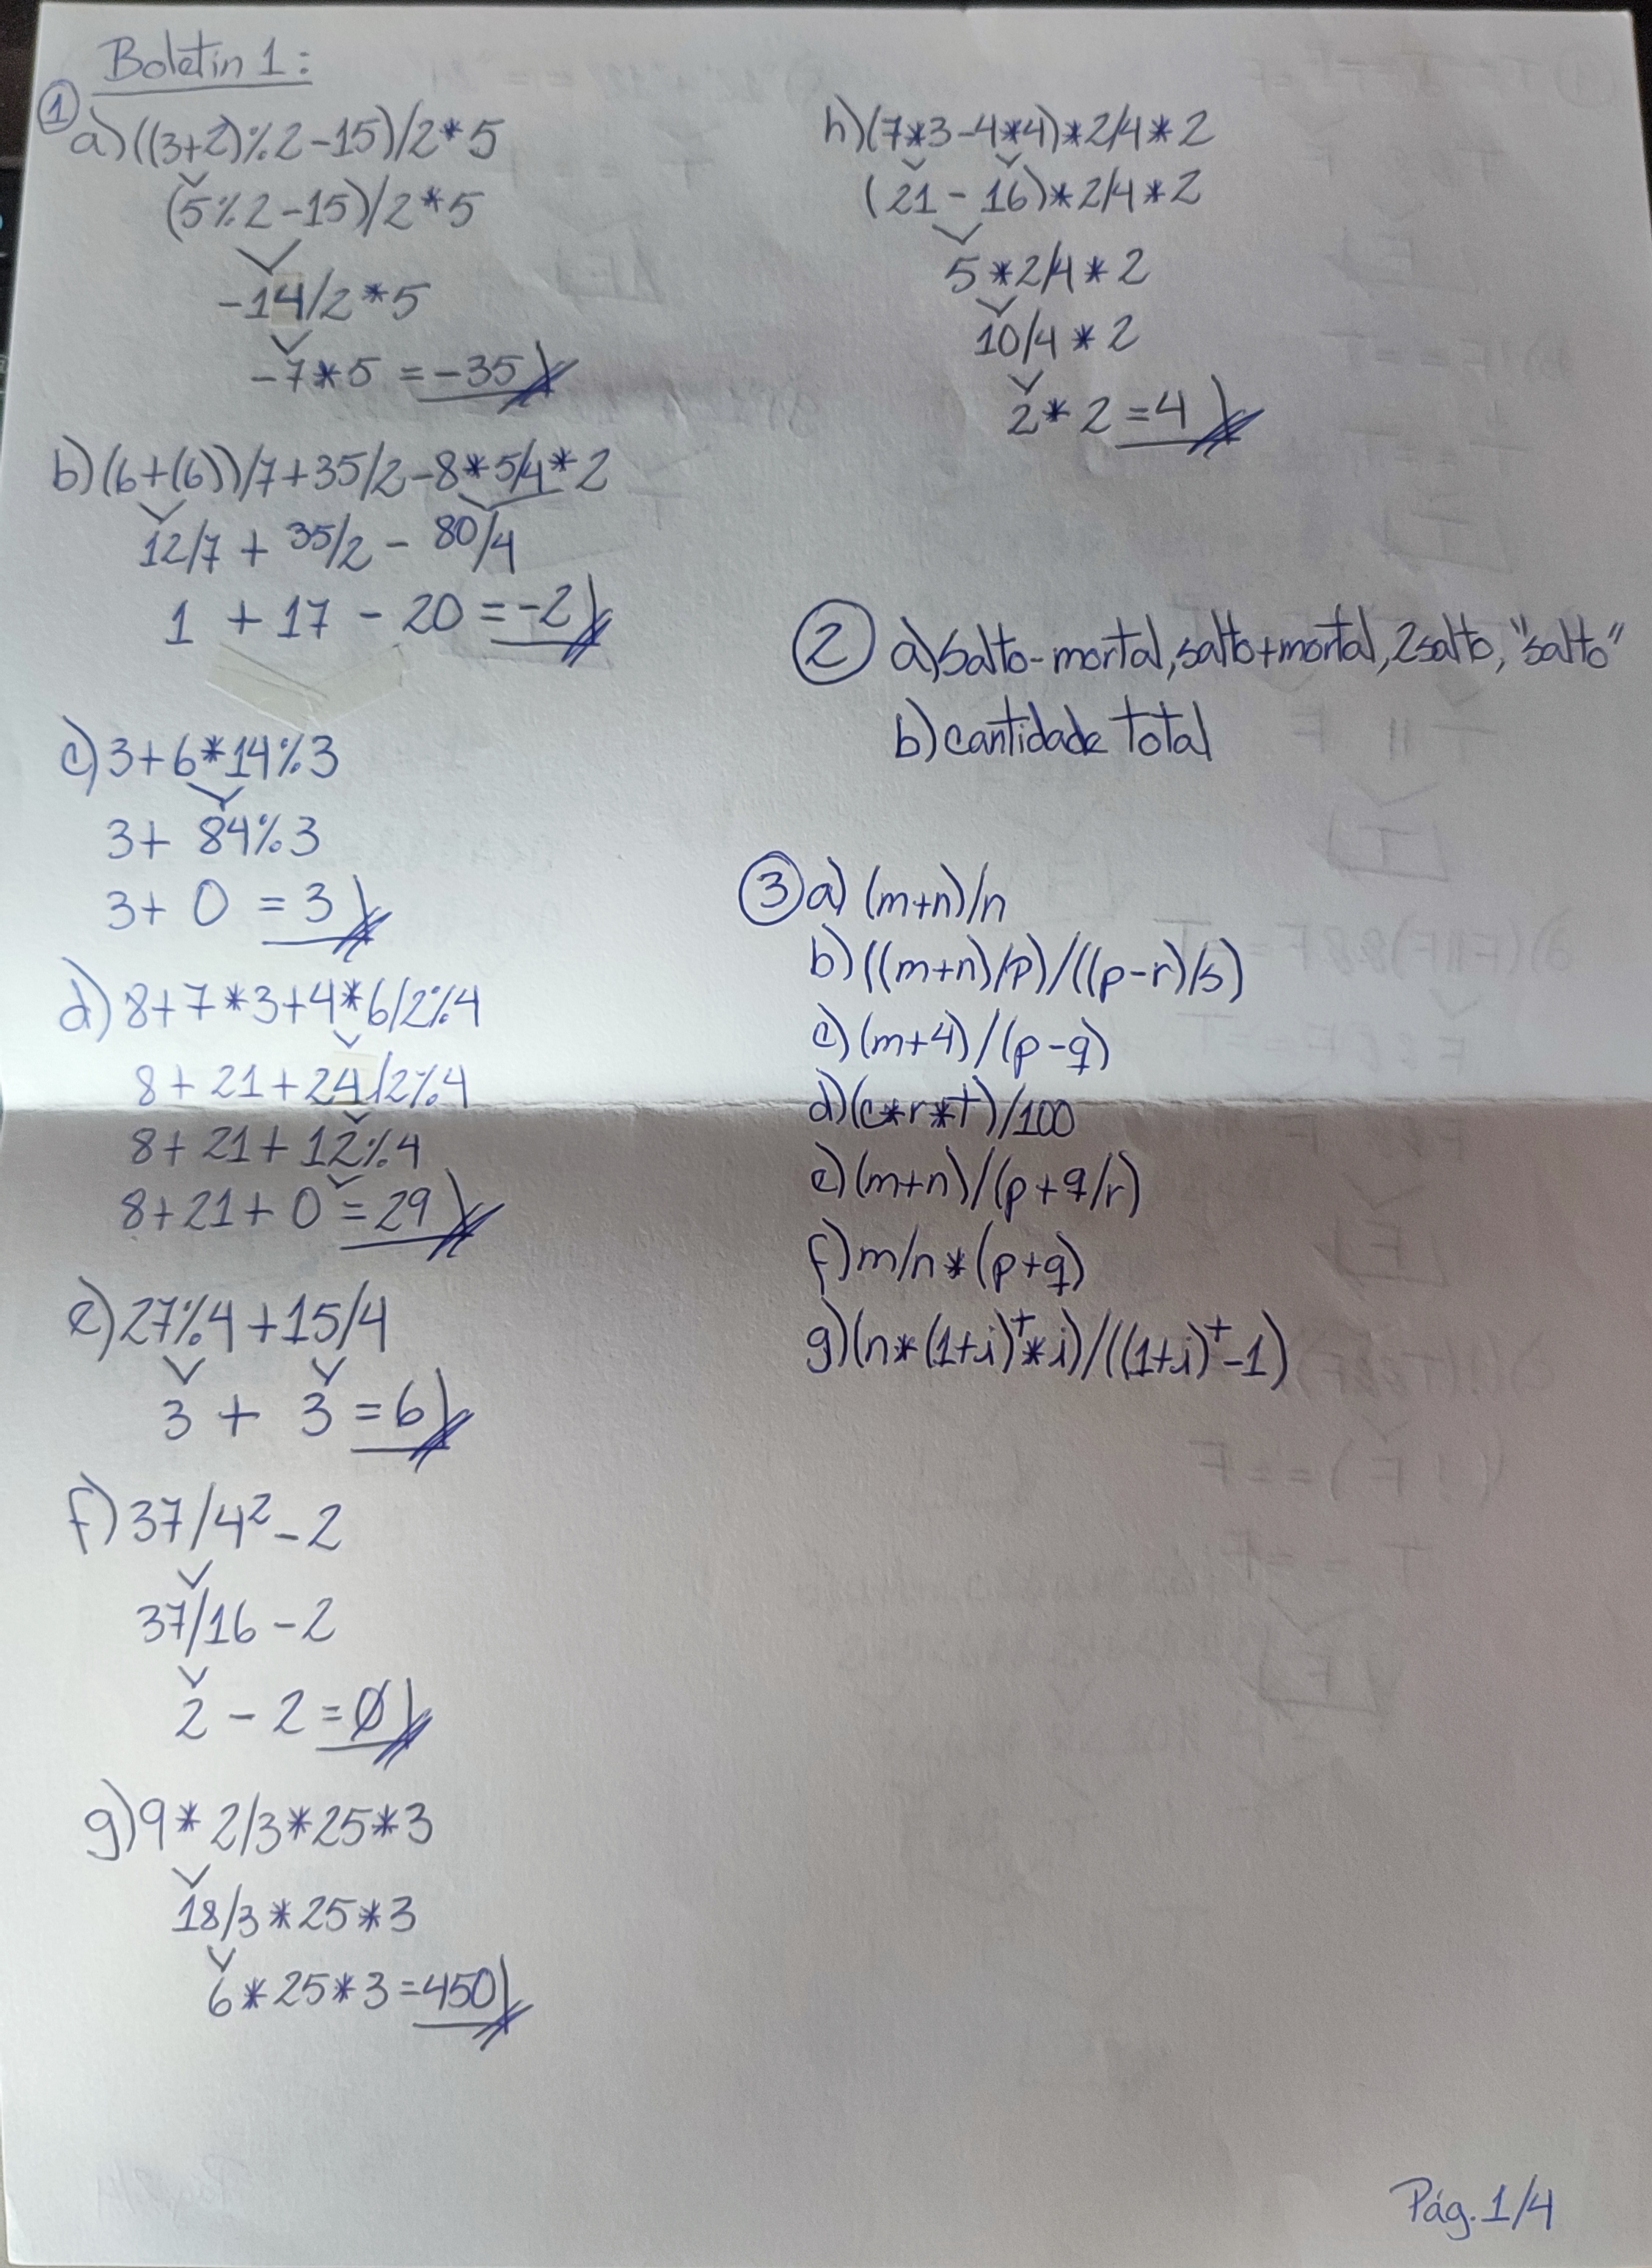 Boletin 1:
① a) ((3+2)%2-15)/2*5
(5%2-15)/2*5
-14/2*5
-7*5 = -35
b) (6+(6))/7+35/2-8*5/4*2
12/7 + 35/2 - 80/4
1 + 17 - 20 = -2
c) 3+6*14%3
3+ 84%3
3+ 0 = 3
d) 8+7*3+4*6/2%4
8+21+24/2%4
8+21+12%4
8+21+0 = 29
e) 27%4+15/4
3 + 3 = 6
f) 37/4²-2
37/16-2
2-2 = Ø
g) 9*2/3*25*3
18/3*25*3
6*25*3 = 450
h) (7*3-4*4)*2/4*2
(21-16)*2/4*2
5*2/4*2
10/4*2
2*2 = 4
② a) salto-mortal, salto+mortal, 2salto, "salto"
b) cantidade total
③ a) (m+n)/n
b) ((m+n)/p)/((p-r)/s)
c) (m+4)/(p-q)
d) (c*r*t)/100
e) (m+n)/(p+q/r)
f) m/n*(p+q)
g) (n*(1+i)^t*i)/((1+i)^t-1)
Pág. 1/4